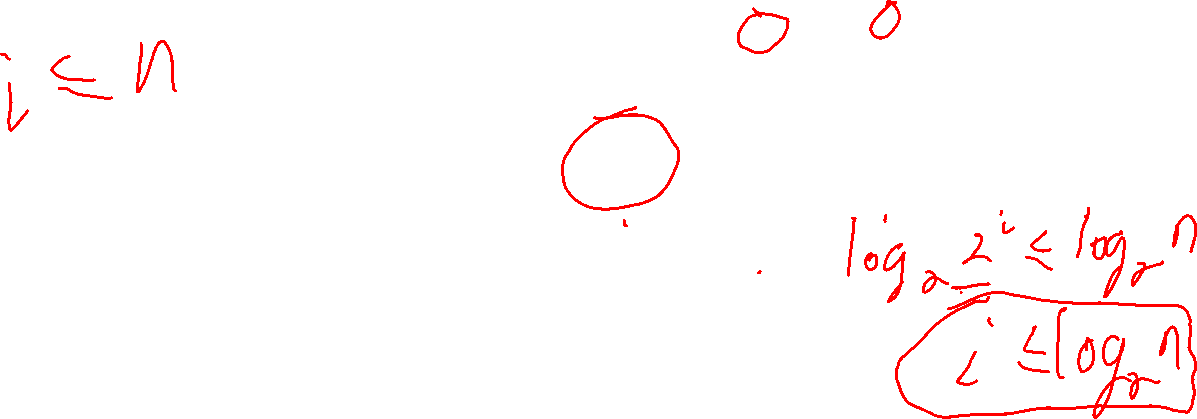 i ≤ n
log₂ 2ⁱ ≤ log₂ n
i ≤ log₂ n